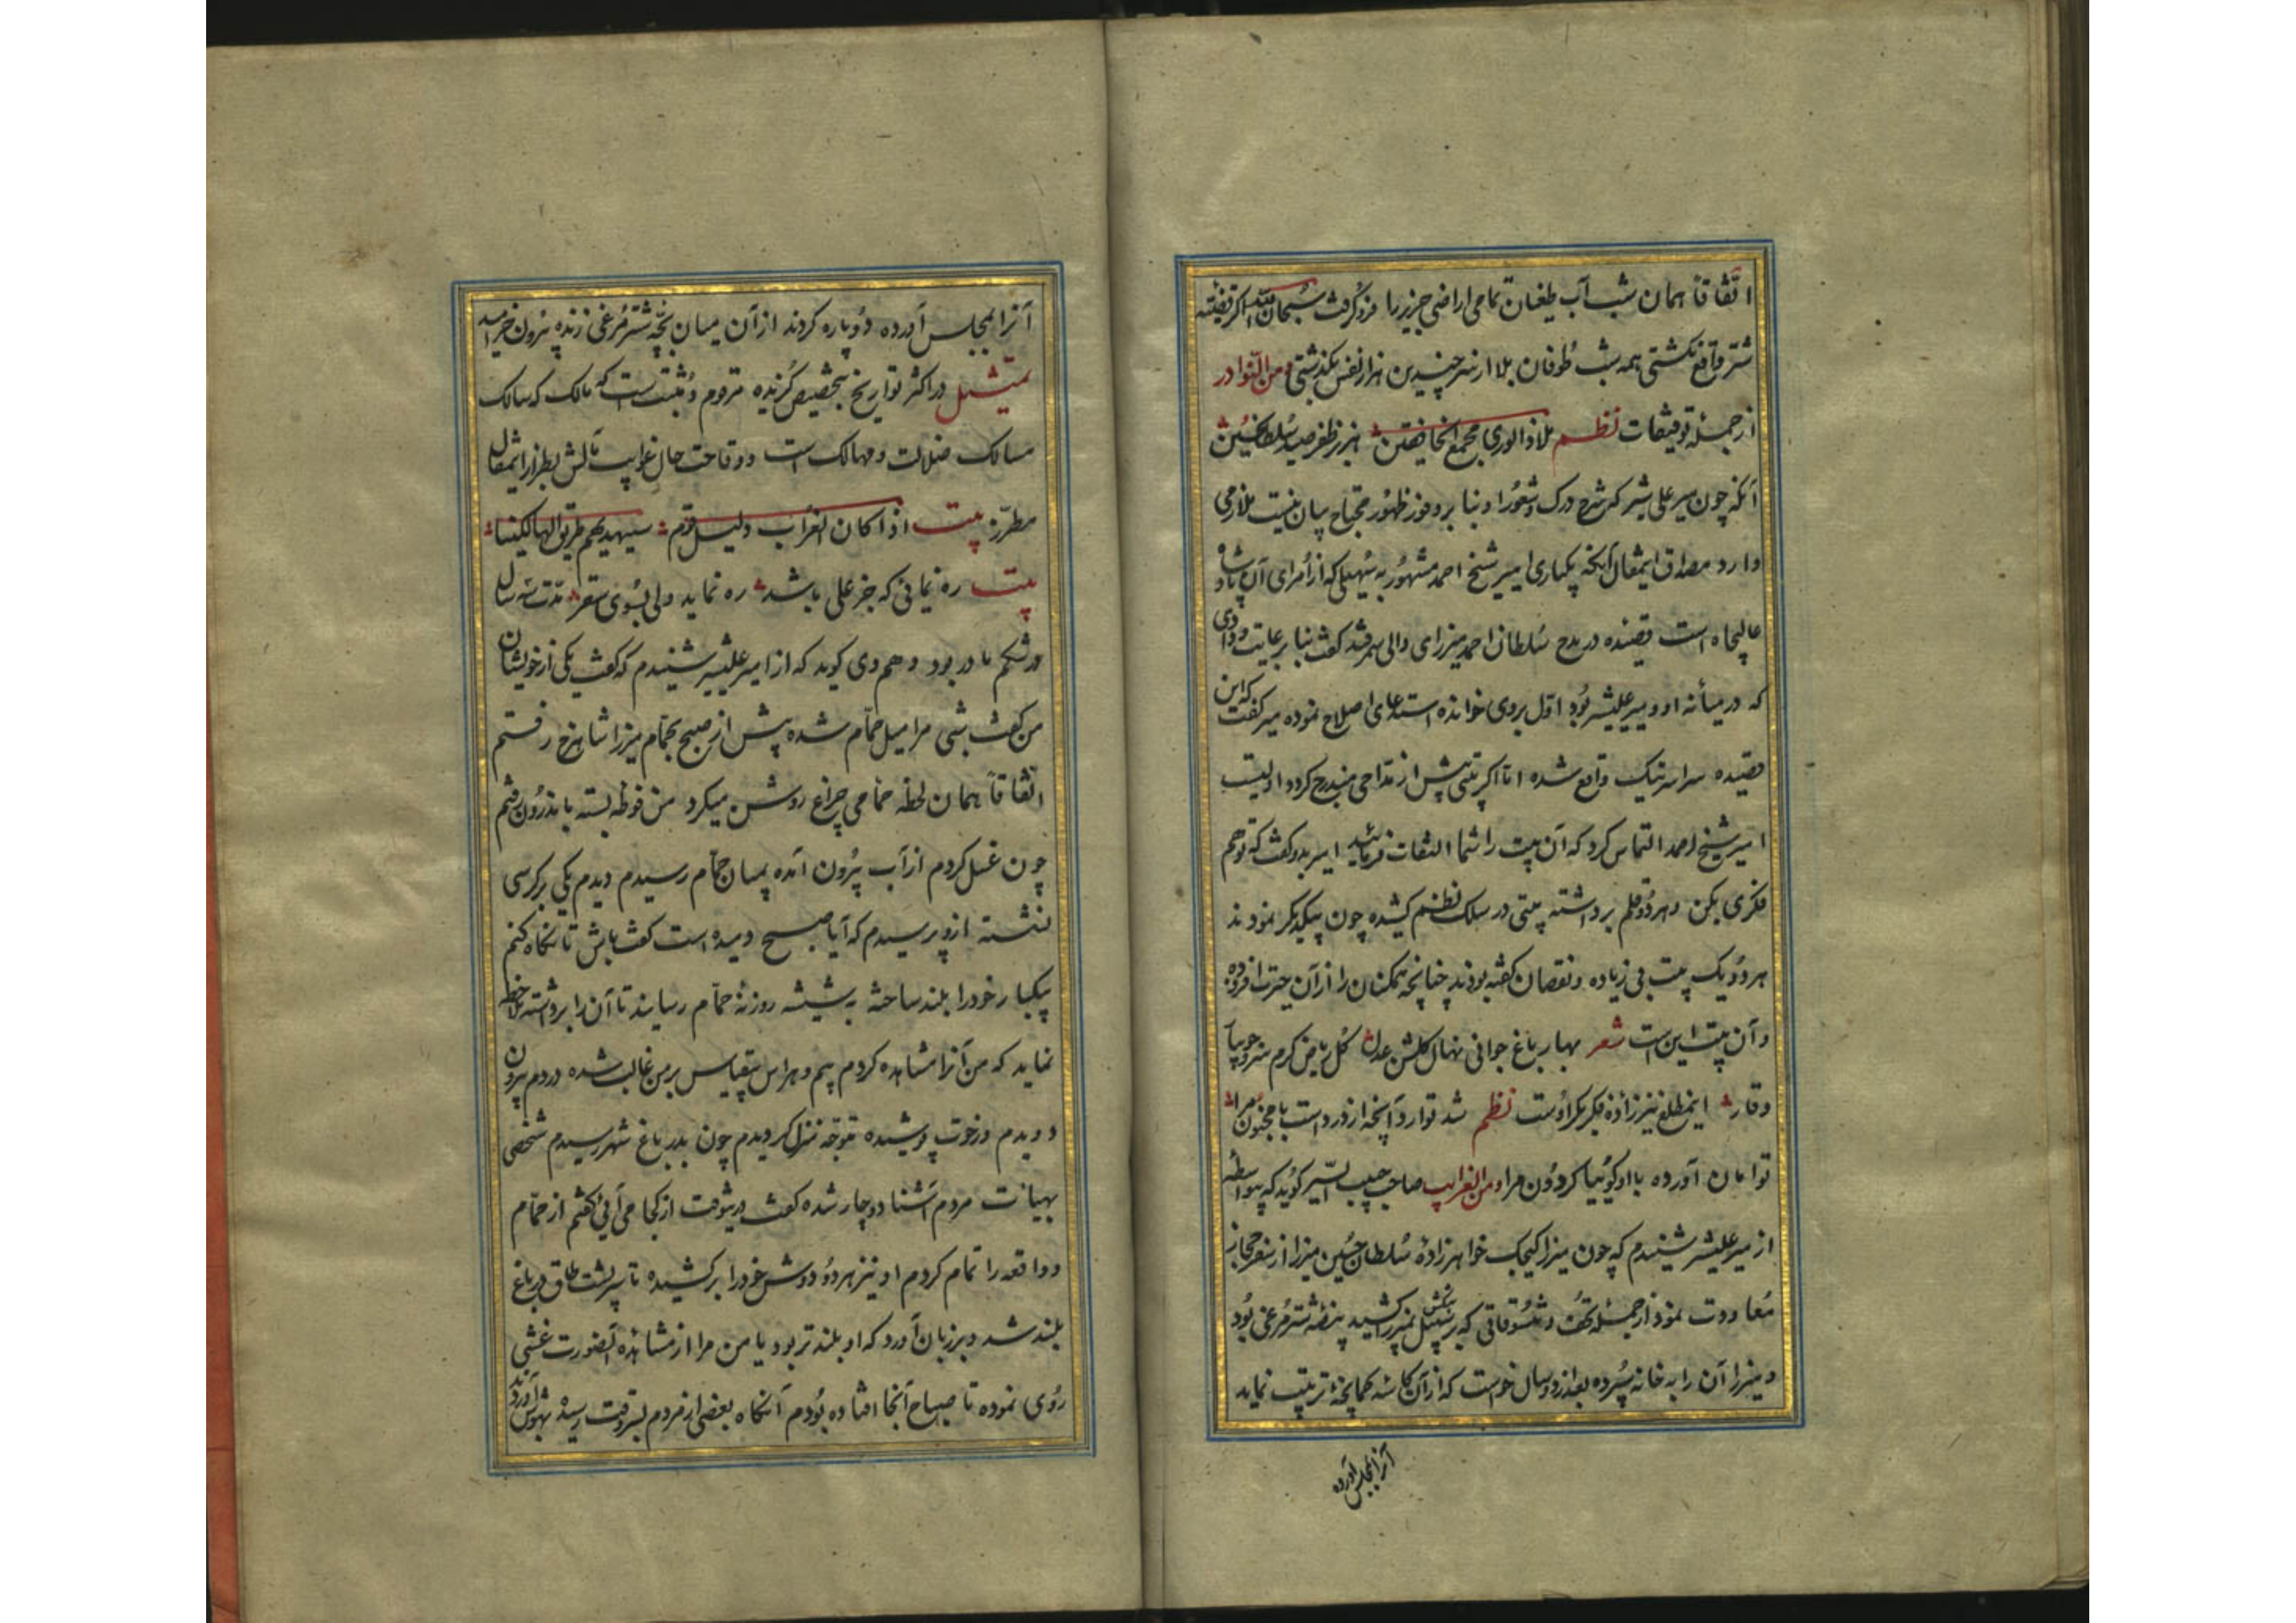 اتفاقا همان شب آب طغیان تمامی اراضی جزیر را فرو گرفت سبحان الله اگر قضیه
شتر واقع نکشتی همه شب طوفان بلا از سر چندین هزار نفس بکذشتی ومن النوادر
از جمله توفیقات نظم ملاذ الوری مجمع الخافقین هزبر ظفر صید سلطان حسین
آنکه چون میر علی شیر که شرح درک و شعور او بنا بر وفور ظهور محتاج بیان نیست ملازمی
دارد مصداق اینمقال آنکه یکباری امیر شیخ احمد مشهور به سهیلی که از امرای آن پادشاه
عالیجاه است قصیده در مدح سلطان احمد میرزای والی سمرقند کفت بنا بر عایت ودادی
که در میانه او و میر علیشیر بود اول بر وی خوانده استدعای اصلاح نموده میر کفت که این
قصیده سراسر نیک واقع شده اما اکر بیتی پیش از مداحی مندرج کردد اولیست
امیر شیخ احمد التماس کرد که آن بیت را شما التفات فرمائید امیر بدو کفت که تو هم
فکری بکن و هر دو قلم برداشته بیتی در سلک نظم کشیده چون بیکدیکر نمودند
هر دو یک بیت بی زیاده و نقصان کفته بودند چنانچه همکنان را از آن حیرت افزوده
و آن بیت این است شعر بهار باغ جوانی نهال کلشن عدل کل ریاض کرم سرو جویبار
وقار این مطلع نیز زاده فکر بکر اوست نظم شد توارد آنچه از درد است با مجنون مرا
توامان آورده با او کوئیا کردون مرا ومن الغرایب صاحب حبیب السیر کوید که بیواسطه
از میر علیشیر شنیدم که چون میرزا کیچک خواهرزاده سلطان حسین میرزا از سفر حجاز
معاودت نمود از جمله تحف و تنسوقاتی که برسبیل بنظر کشید بیضه شتر مرغی بود
و میرزا آن را به خانه سپرده بعد از دو سال خواست که از آن کاسه کمانچه ترتیب نماید
آنرا بمجلس آورده
آنرا بمجلس آورده دو پاره کردند از آن میان بچه شتر مرغی زنده بیرون خرامید
تمثیل در اکثر تواریخ بتخصیص کزیده مرقوم و مثبت است که مالک که سالک
مسالک ضلالت و مهالک است و وقاحت حال غرایب مآلش بطراز اینمقال
مطرز بیت اذا کان الغراب دلیل قوم سیهدیهم طریق الهالکینا
بیت ره نمائی که جز علی باشد ره نماید ولی بسوی سقر مدت سه سال
در شکم مادر بود و هم وی کوید که از امیر علیشیر شنیدم که کفت یکی از خویشان
من کفت شبی مرا میل حمام شده پیش از صبح بحمام میرزا شاهرخ رفتم
اتفاقا همان لحظه حمامی چراغ روشن میکرد من فوطه بسته باندرون رفتم
چون غسل کردم از آب بیرون آمده بمیان حمام رسیدم دیدم یکی بر کرسی
نشسته ازو پرسیدم که آیا صبح دمیده است کفت باش تا نکاه کنم
بیکبار خود را بلند ساخته به شیشه روزنه حمام رسانید تا آن را برداشته ملاحظه
نماید که من آنرا مشاهده کردم بیم و هراس بیقیاس بر من غالب شده در دم بیرون
دویدم و رخوت پوشیده متوجه منزل کردیدم چون بدر باغ شهر رسیدم شخصی
بهیات مردم آشنا دوچار شده کفت درینوقت از کجا می آئی کفتم از حمام
و واقعه را تمام کردم او نیز هر دو دوش خود را برکشیده تا سر پشت طاق در باغ
بلند شد و بر زبان آورد که او بلندتر بود یا من مرا از مشاهده آنصورت غشی
روی نموده تا صباح آنجا افتاده بودم آنکاه بعضی از مردم بسروقت رسیده بهوش آوردند